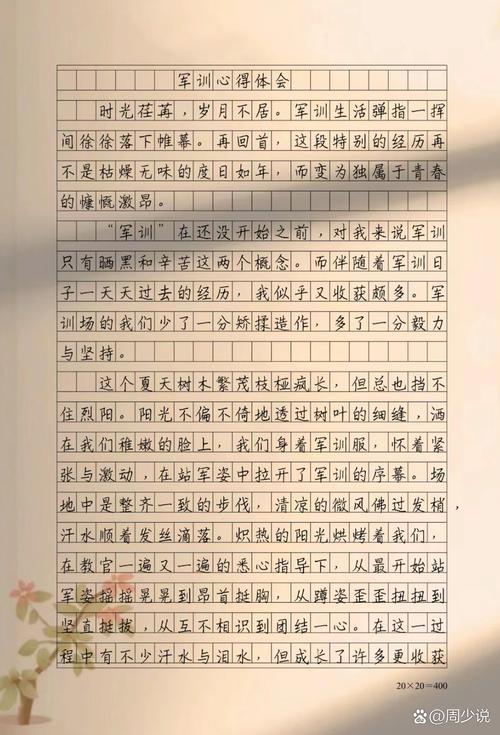 军训心得体会
时光荏苒，岁月不居。军训生活弹指一挥
间徐徐落下帷幕。再回首，这段特别的经历再
不是枯燥无味的度日如年，而变为独属于青春
的慷慨激昂。
“军训”在还没开始之前，对我来说军训
只有晒黑和辛苦这两个概念。而伴随着军训日
子一天天过去的经历，我似乎又收获颇多。军
训场的我们少了一分矫揉造作，多了一分毅力
与坚持。
这个夏天树木繁茂枝桠疯长，但总也挡不
住烈阳。阳光不偏不倚地透过树叶的细缝，洒
在我们稚嫩的脸上，我们身着军训服，怀着紧
张与激动，在站军姿中拉开了军训的序幕。场
地中是整齐一致的步伐，清凉的微风佛过发梢，
汗水顺着发丝滴落。炽热的阳光烘烤着我们，
在教官一遍又一遍的悉心指导下，从最开始站
军姿摇摇晃晃到昂首挺胸，从蹲姿歪歪扭扭到
坚直挺拔，从互不相识到团结一心。在这一过
程中有不少汗水与泪水，但成长了许多更收获
20×20=400
@周少说